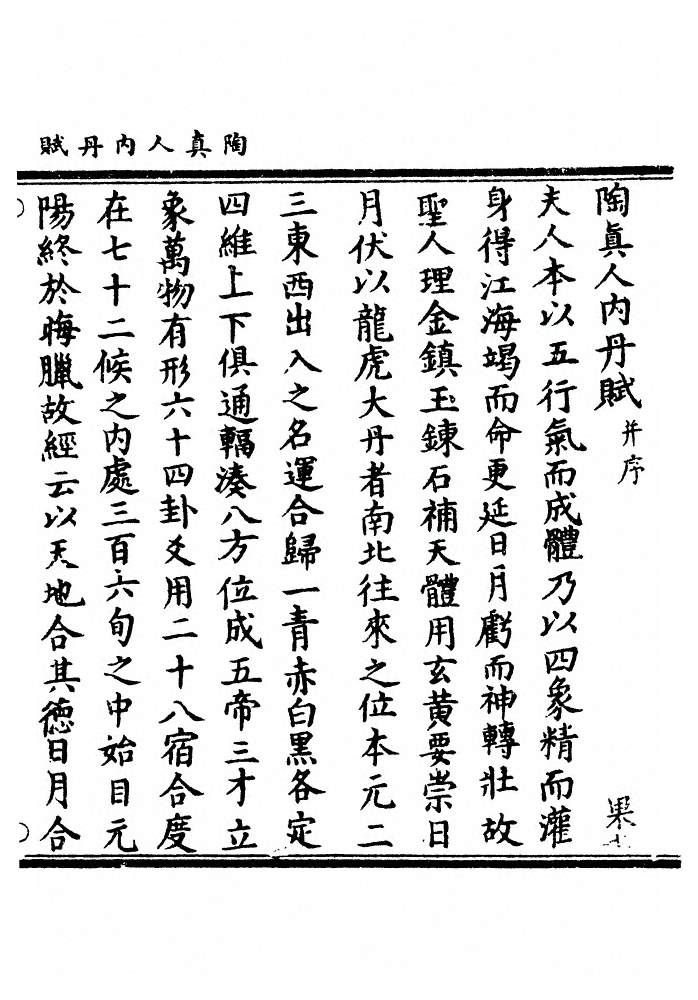 陶真人內丹賦
陶眞人内丹賦 并序 果七
夫人本以五行氣而成體乃以四象精而灌
身得江海竭而命更延日月虧而神轉壯故
聖人理金鎮玉鍊石補天體用玄黄要崇日
月伏以龍虎大丹者南北往來之位本元二
三東西出入之名運合歸一青赤白黑各定
四維上下俱通輻湊八方位成五帝三才立
象萬物有形六十四卦爻用二十八宿合度
在七十二候之内處三百六旬之中始自元
陽終於晦臘故經云以天地合其德日月合